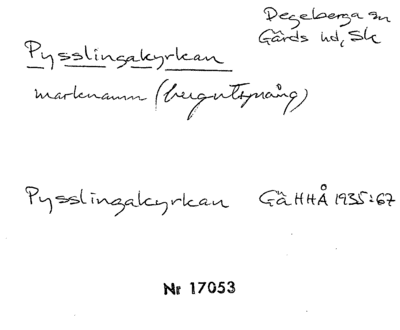 Degeberga sn
Gärds hd, Sk
Pysslingakyrkan
marknamn (bergutsprång)
Pysslingakyrkan GäHHÅ 1935:67
Nr 17053